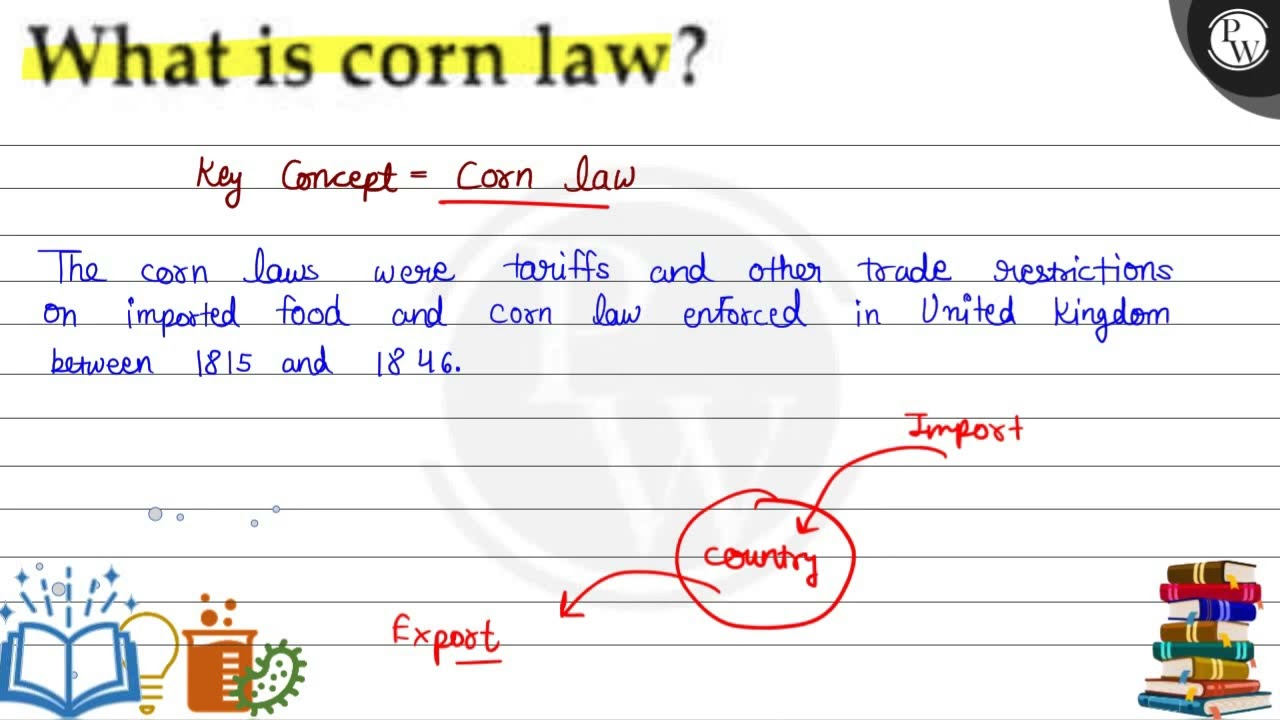 What is corn law?
PW
Key Concept = Corn law
The corn laws were tariffs and other trade restrictions
on imported food and corn law enforced in United Kingdom
between 1815 and 1846.
Import
Country
Export